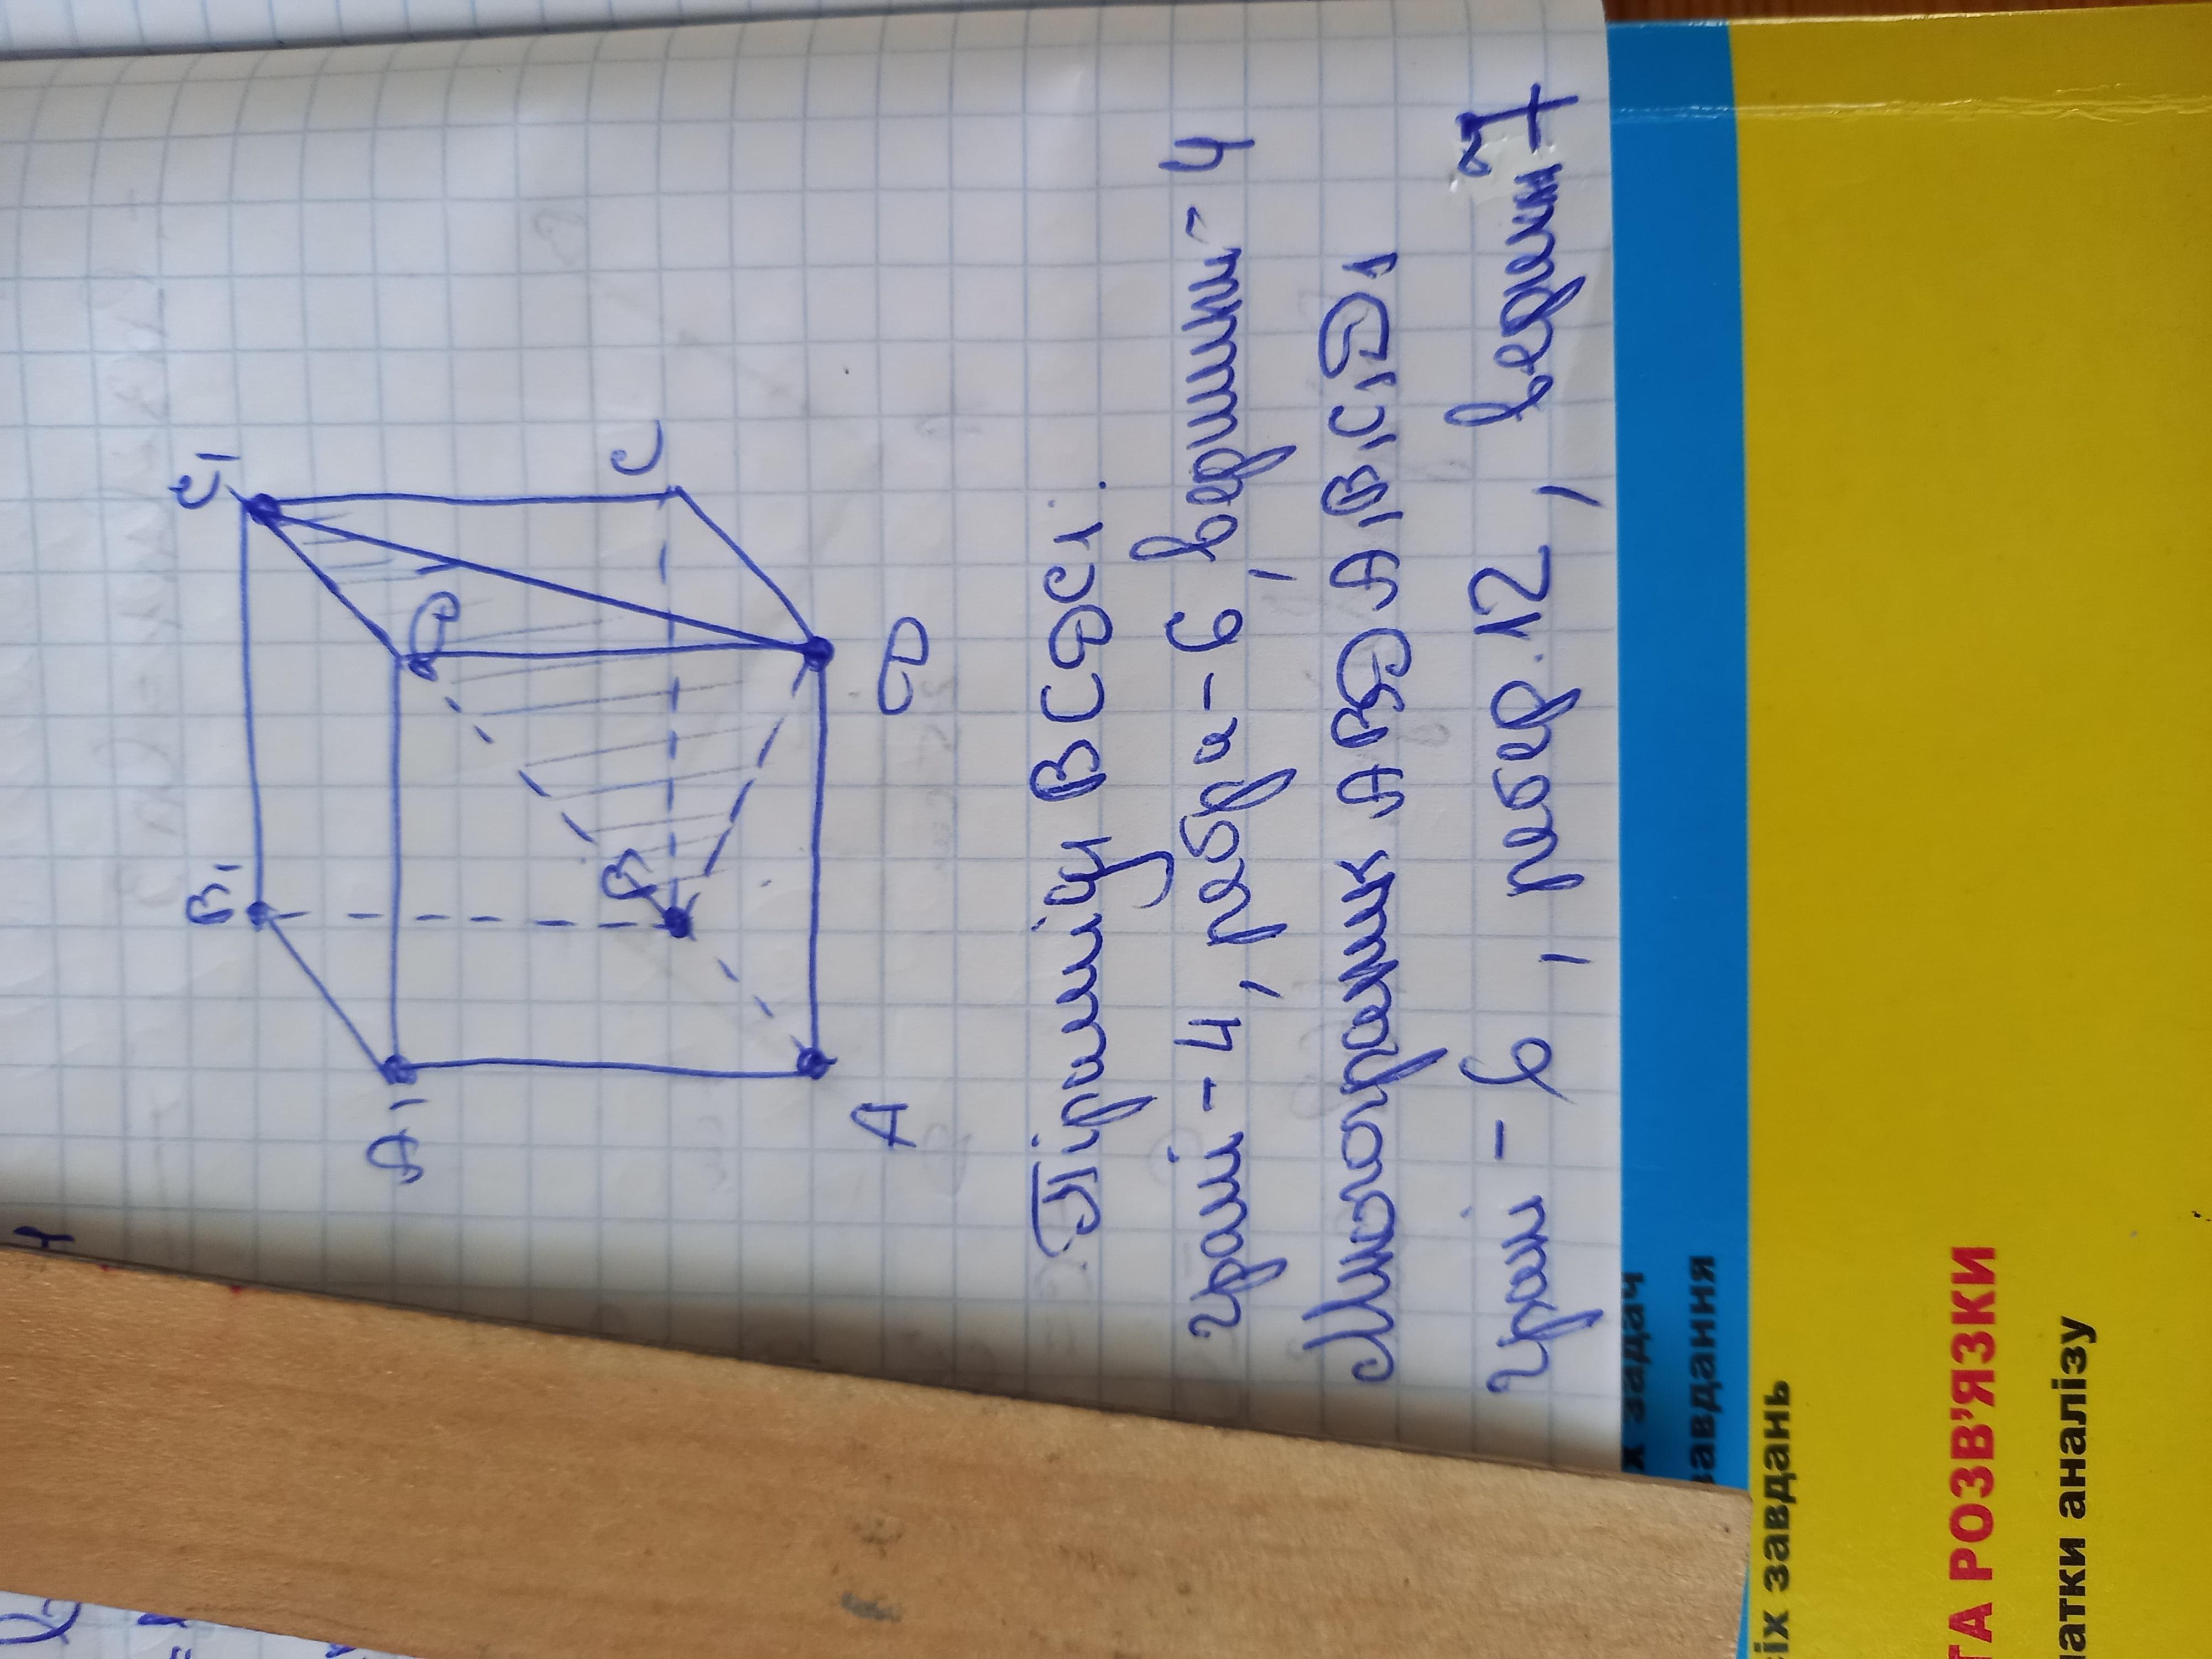 B1
C1
A1
D
B
C
A
D
Піраміду BCDC1.
грані - 4, ребра - 6, вершини - 4
Многогранник ABDA1B1C1D1
грані - 6, ребер. 12, вершин 7
х задач
завдання
сіх завдань
ТА РОЗВ'ЯЗКИ
чатки аналізу